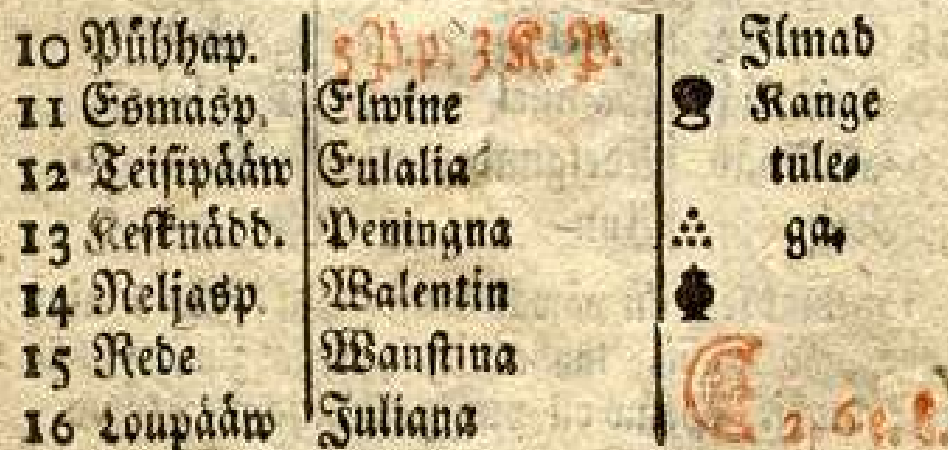 10 Pühhap. 5 P. p. 3 K. P. Ilmad
11 Esmasp. Elwine Kange
12 Teisipääw Eulalia tule-
13 Kesknädd. Peningna ga,
14 Neljasp. Walentin
15 Rede Wanstina
16 Loupääw Juliana 2, 6 e. L.